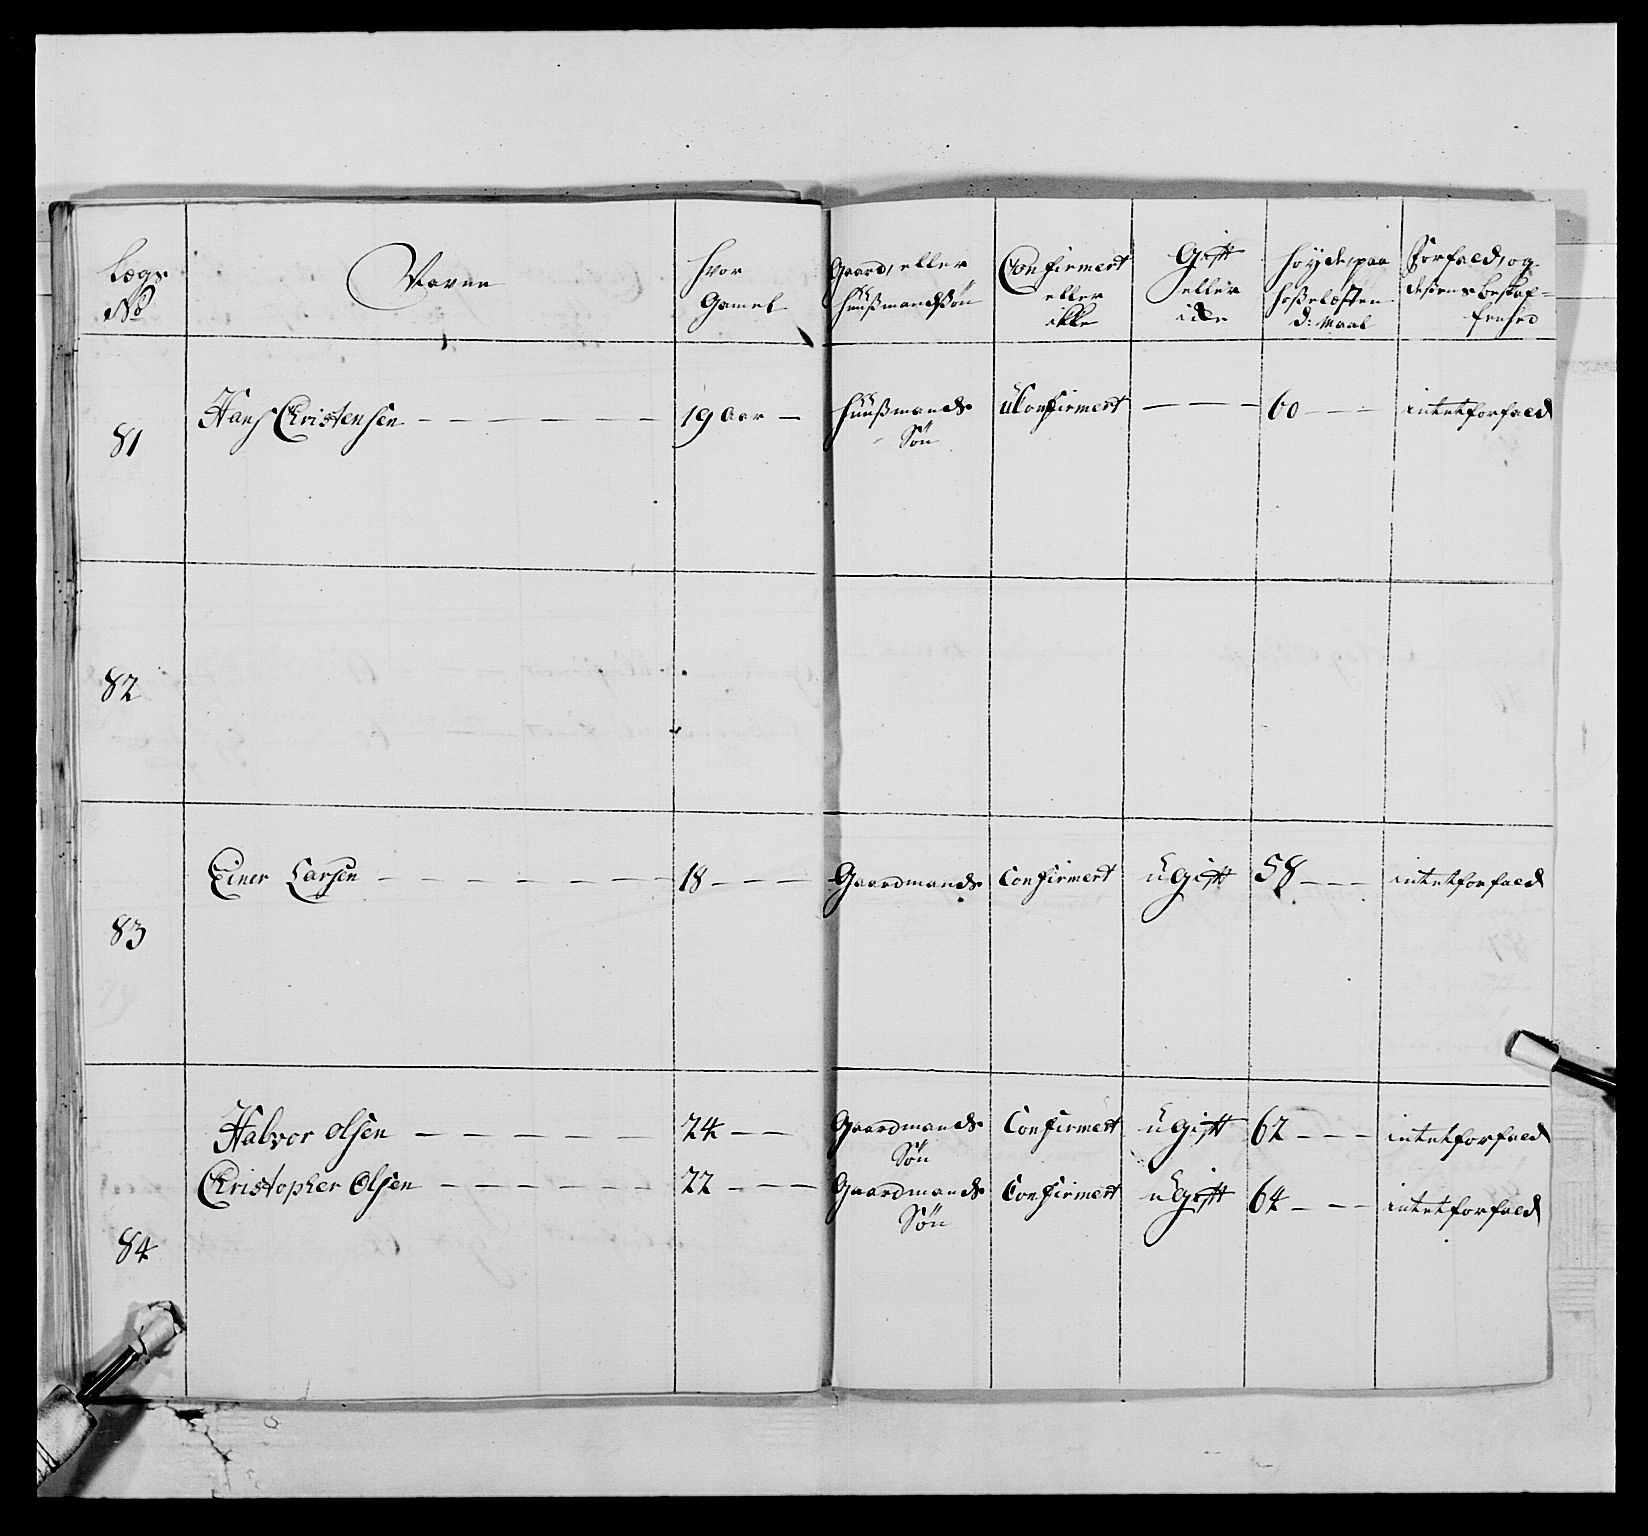 Lægs No | Navne | hvor Gamel | Gaard, eller huusmandssøn | Confirmert eller ikke | Gift eller icke | høyde, paa d: Maal | Forfald, og dessens beskaffenhed
81 | Hans Christensen | 19 Aar | huusmands Søn | uConfirmert | — | 60 | intet forfald
82
83 | Einer Larsen | 18 | Gaardmands | Confirmert | ugift | 58 | intet forfald
84 | Halvor Olsen | 24 | Gaardmands Søn | Confirmert | ugift | 62 | intet forfald
Christopher Olsen | 22 | Gaardmands Søn | Confirmert | ugift | 64 | intet forfald